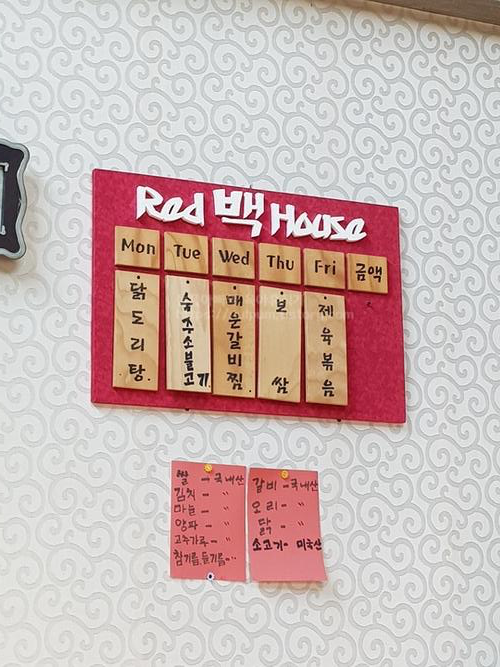 Red 백 House
Mon Tue Wed Thu Fri 금액
닭도리탕
숙주소불고기
매운갈비찜
보쌈
제육볶음
쌀 - 국내산
김치 - 〃
마늘 - 〃
양파 - 〃
고추가루 - 〃
참기름, 들기름 - 〃
갈비 - 국내산
오리 - 〃
닭 - 〃
소고기 - 미국산